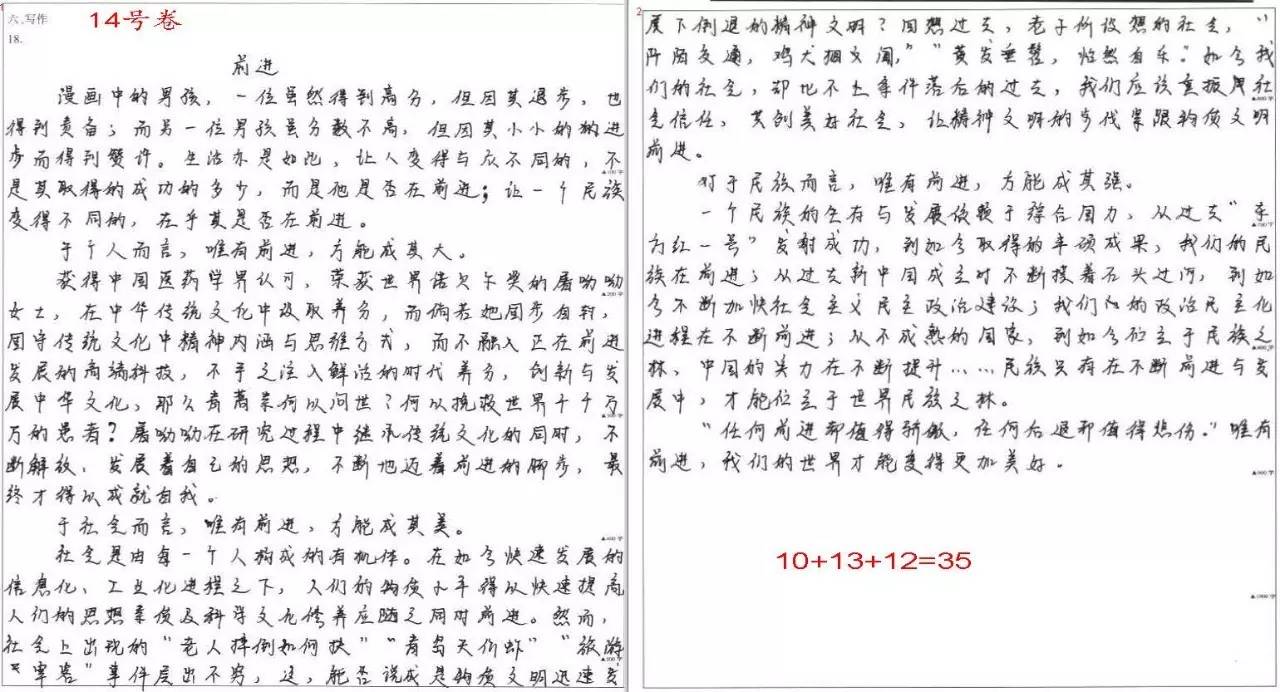 1
六、写作
14号卷
18.
前进
漫画中的男孩，一位虽然得到高分，但因其退步，也
得到责备；而另一位男孩虽分数不高，但因其小小的进
步而得到赞许。生活亦是如此，让人变得与众不同的，不
▲100字
是其取得的成功的多少，而是他是否在前进；让一个民族
变得不同的，在乎其是否在前进。
于个人而言，唯有前进，方能成其大。
获得中国医药学界认可，荣获世界诺贝尔奖的屠呦呦
▲200字
女士，在中华传统文化中汲取养分，而倘若她固步自封，
固守传统文化中精神内涵与思维方式，而不融入正在前进
发展的高端科技，不予之注入鲜活的时代养分，创新与发
展中华文化，那么青蒿素何以问世？何以挽救世界千千万
▲300字
万的患者？屠呦呦在研究过程中继承传统文化的同时，不
断解放、发展着自己的思想，不断地迈着前进的脚步，最
终才得以成就自我。
于社会而言，唯有前进，方能成其美。
▲400字
社会是由每一个人构成的有机体。在如今快速发展的
信息化、工业化进程之下，人们的物质水平得以快速提高
人们的思想素质及科学文化修养应随之同时前进。然而，
社会上出现的“老人摔倒如何扶”“青岛天价虾”“旅游
▲500字
宰客”事件层出不穷，这，能否说成是物质文明迅速发
2
展下倒退的精神文明？回想过去，老子所设想的社会，“
阡陌交通，鸡犬相闻，”“黄发垂髫，怡然自乐。”如今我
们的社会，却比不上条件落后的过去，我们应该重拾社
▲600字
会信任，共创美好社会，让精神文明的步伐紧跟物质文明
前进。
对于民族而言，唯有前进，方能成其强。
一个民族的生存与发展依赖于综合国力，从过去“东
▲700字
方红一号”发射成功，到如今取得的丰硕成果，我们的民
族在前进；从过去新中国成立时不断摸着石头过河，到如
今不断加快社会主义民主政治建设；我们的政治民主化
进程在不断前进；从不成熟的国家，到如今位立于民族之
▲800字
林，中国的实力在不断提升……民族只有在不断前进与发
展中，才能位立于世界民族之林。
“任何前进都值得骄傲，任何后退都值得悲伤。”唯有
前进，我们的世界才能变得更加美好。
▲900字
10+13+12=35
▲1000字